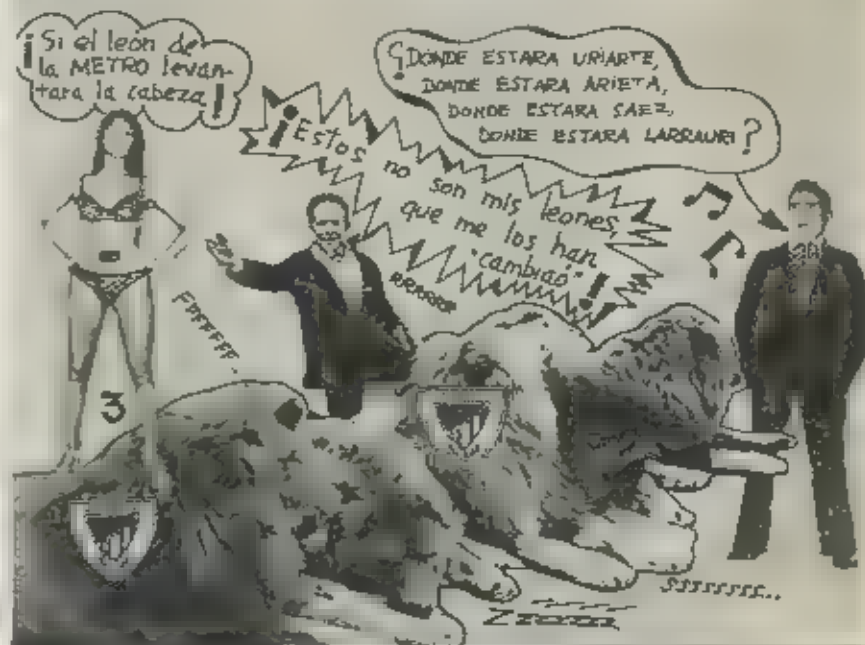 ¡Si el leon de
la METRO levan-
tara la cabeza!
¿DONDE ESTARA URIARTE,
DONDE ESTARA ARIETA,
DONDE ESTARA SAEZ,
DONDE ESTARA LARRAURI?
¡Estos no son mis leones,
que me los han
"cambiao"!
FPFFFFF
3
Zzzzzz
SSSSSSSS..